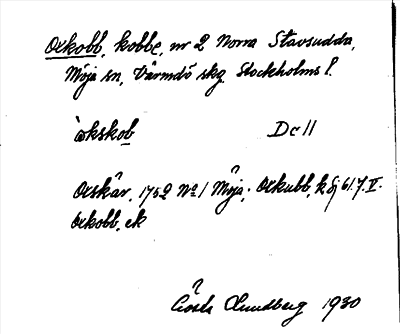 Oxkobb, kobbe, nr 2 Norra Stavsudda,
Möja sn, Värmdö skg. Stockholms l.
òkskob Dc11
Oxskär, 1752 No 1 Möja; Oxkubb, k Sj 61. 7. V.
Oxkobb, ek
Gösta Lundberg 1930